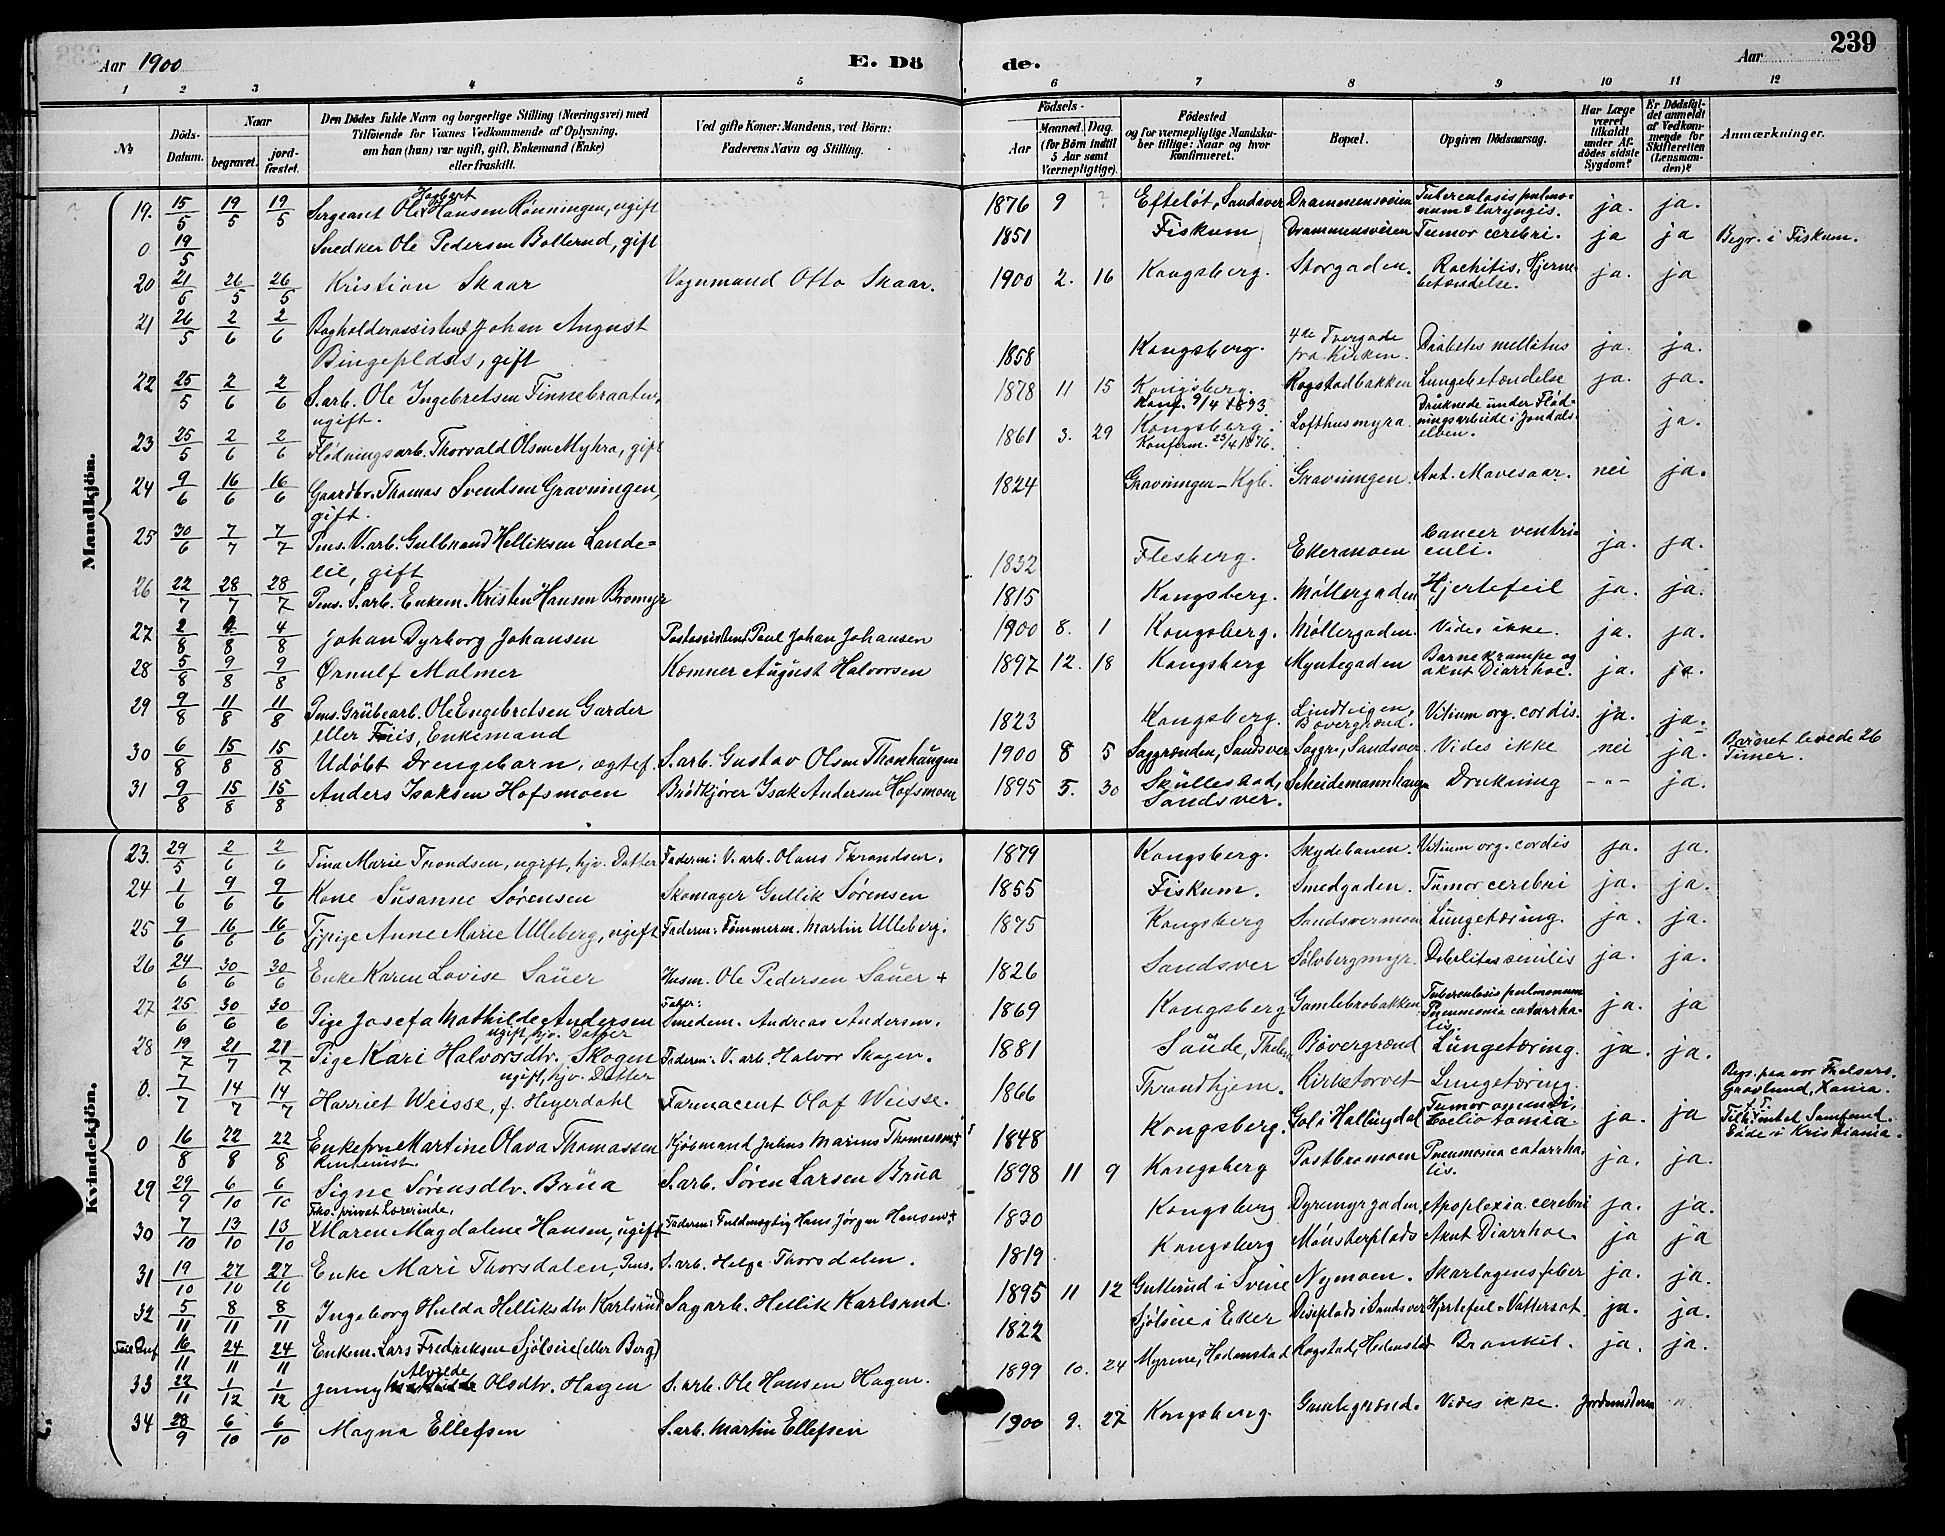 Aar 1900
E. Dö
de.
Aar
239
1 2 3 4 5 6 7 8 9 10 11 12
No
Döds-Datum.
Naar
begravet.
jord-fæstet.
Den Dödes fulde Navn og borgerlige Stilling (Næringsvei) med
Tilföiende for Voxnes Vedkommende af Oplysning,
om han (hun) var ugift, gift, Enkemand (Enke)
eller fraskilt.
Ved gifte Koner: Mandens, ved Börn:
Faderens Navn og Stilling.
Födsels-
Aar
Maaned. Dag.
(for Börn indtil
5 Aar samt
Værnepligtige).
Födested
og for værnepligtige Mandskaber tillige: Naar og hvor
konfirmeret.
Bopæl.
Opgiven Dödsaarsag.
Har Læge været tilkaldt under Afdödes sidste Sygdom?
Er Dödsfaldet anmeldt af Vedkommende for Skifteretten (Lensmanden)?
Anmærkninger.
Mandkjön.
19. 15/5 19/5 19/5 Sergeant Ole Hagbart Hansen Rønningen, ugift 1876 9 Efteløt, Sandsver Drammensveien Tuberculosis pulmonum & laryngis. ja. ja.
0 19/5 Snedker Ole Pedersen Bollerud, gift 1851 Fiskum Drammensveien Tumor cerebri. ja ja Begr. i Fiskum.
20 21/5 26/5 26/5 Kristian Skaar Vognmand Otto Skaar. 1900 2. 16 Kongsberg. Storgaden. Rachitis, Hjernebetændelse. ja. ja
21 26/5 2/6 2/6 Bogholderassistent Johan August Bingeplads, gift 1858 Kongsberg. 4de Tvergade fra Kirken. Diabetes mellitus ja. ja.
22 25/5 2/6 2/6 S.arb. Ole Ingebretsen Finnebraaten, ugift. 1878 11 15 Kongsberg. Konf. 9/4 1893. Rogstadbakken Lungebetændelse ja. ja.
23 25/5 2/6 2/6 Flødningsarb. Thorvald Olsen Myhra, gift 1861 3. 29 Kongsberg. Konfirm. 23/4 1876. Lofthusmyra Druknede under Flødningsarbeide i Jondalselven. ja.
24 9/6 16/6 16/6 Gaardbr. Thomas Svendsen Gravningen, gift. 1824 Gravningen - Kgb. Gravningen. Ant. Mavesaar. nei ja.
25 30/6 7/7 7/7 Pens. V.arb. Gulbrand Helliksen Landelie, gift 1832 Flesberg. Ekermoen Cancer ventriculi. ja. ja.
26 22/7 28/7 28/7 Pens. S.arb. Enkem. Kristen Hansen Bromyr 1815 Kongsberg. Møllergaden Hjertefeil ja. ja.
27 2/8 4/8 4/8 Johan Dyrborg Johansen Postassistent Paul Johan Johansen 1900 8. 1 Kongsberg. Møllergaden. Vides ikke. ja. ja.
28 5/8 9/8 9/8 Ørnulf Malmer Kæmner August Halvorsen 1897 12. 18 Kongsberg Myntegaden Barnekrampe og akut Diarrhoe. ja. ja.
29 9/8 11/8 11/8 Pens. Grubearb. Ole Engebretsen Garder eller Friis, Enkemand 1823 Kongsberg. Lindteigen, Bøvergrend. Vitium org. cordis. ja. ja.
30 6/8 15/8 15/8 Udøbt Drengebarn, ægtef. S.arb. Gustav Olsen Thonhaugen 1900 8 5 Saggrenden, Sandsver Saggr., Sandsver Vides ikke nei ja. Barnet levede 26 Timer.
31 9/8 15/8 15/8 Anders Isaksen Hofsmoen Brødkjører Isak Andersen Hofsmoen 1895 5. 30 Skollestad, Sandsver. Scheidemannhaugen Drukning -"- ja.
Kvindekjön.
23. 29/5 2/6 2/6 Tina Marie Trondsen, ugift, hjv. Datter Faderen: V. arb. Olaus Throndsen. 1879 Kongsberg. Skydebanen. Vitium org. cordis ja. ja.
24 1/6 9/6 9/6 Kone Susanne Sørensen Skomager Gullik Sørensen 1855 Fiskum. Smedgaden. Tumor cerebri ja. ja.
25 9/6 16/6 16/6 Tjpige Anne Marie Ulleberg, ugift Faderen: Tømmerm. Martin Ulleberg. 1875 Kongsberg Sandsvermoen Lungetæring. ja. ja.
26 24/6 30/6 30/6 Enke Karen Lovise Sauer Husm. Ole Pedersen Sauer + 1826 Sandsver Sølvbergmyr. Debilitas senilis ja. ja.
27 25/6 30/6 30/6 Pige Josefa Mathilde Andersen ugift, hjv. Datter Fader: Smedem. Andreas Andersen. 1869 Kongsberg Gamlebrobakken Tuberculosis pulmonum Pneumonia catarrhalis. ja. ja
28 19/7 21/7 21/7 Pige Kari Halvorsdtr. Skogen ugift, hjv. Datter Faderen: V. arb. Halvor Skogen. 1881 Saude, Thelem. Bøvergrend Lungetæring. ja. ja.
0. 7/7 14/7 14/7 Harriet Weisse, f. Heyerdahl Farmaceut Olaf Weisse. 1866 Throndhjem. Kirketorvet Lungetæring. Begr. paa vor Frelsers Gravlund, Xania.
0 16/8 22/8 22/8 Enkefru Martine Olava Thomassen Rentenist. Kjøbmand Julius Marius Thomassen + 1848 Kongsberg. Gol i Hallingdal Tumor omenti, Coeliotomia. ja. ja
29 29/9 6/10 6/10 Signe Sørensdtr. Brua S.arb. Søren Larsen Brua 1898 11 9 Kongsberg Postbromoen Pneumonia catarrhalis. ja. ja.
30 7/10 13/10 13/10 Fhv. privat Lærerinde, Maren Magdalene Hansen, ugift Faderen: Fuldmægtig Hans Jørgen Hansen + 1830 Kongsberg Dyremyrgaden Apoplexia cerebri ja. ja.
31 19/10 27/10 27/10 Enke Mari Thorsdalen, Pens. S.arb. Helge Thorsdalen. 1819 Kongsberg Mønsterplads Akut Diarrhoe. ja ja
32 5/11 8/11 8/11 Ingeborg Hulda Helliksdtr Karlsrud Sagarb. Hellik Karlsrud. 1895 11 12 Gutterud i Svene Nymoen. Skarlagensfeber ja. ja.
16/11 24/11 24/11 Enkem. Lars Fredriksen Sjølseie (eller Berg) 1822 Sjølseie i Eker Diseplads i Sandsver Hjertefeil - Vattersot. ja. ja.
33 22/11 1/12 1/12 Jenny Alvilde Olsdtr. Hagen S.arb. Ole Hansen Hagen. 1899 10. 24 Myrene, Hedenstad Rogstad, Hedenstad Bronkit. ja. ja.
34 28/9 6/10 6/10 Magna Ellefsen S.arb. Martin Ellefsen 1900 9. 27 Kongsberg. Gamlegrend. Vides ikke. Jordmoderen